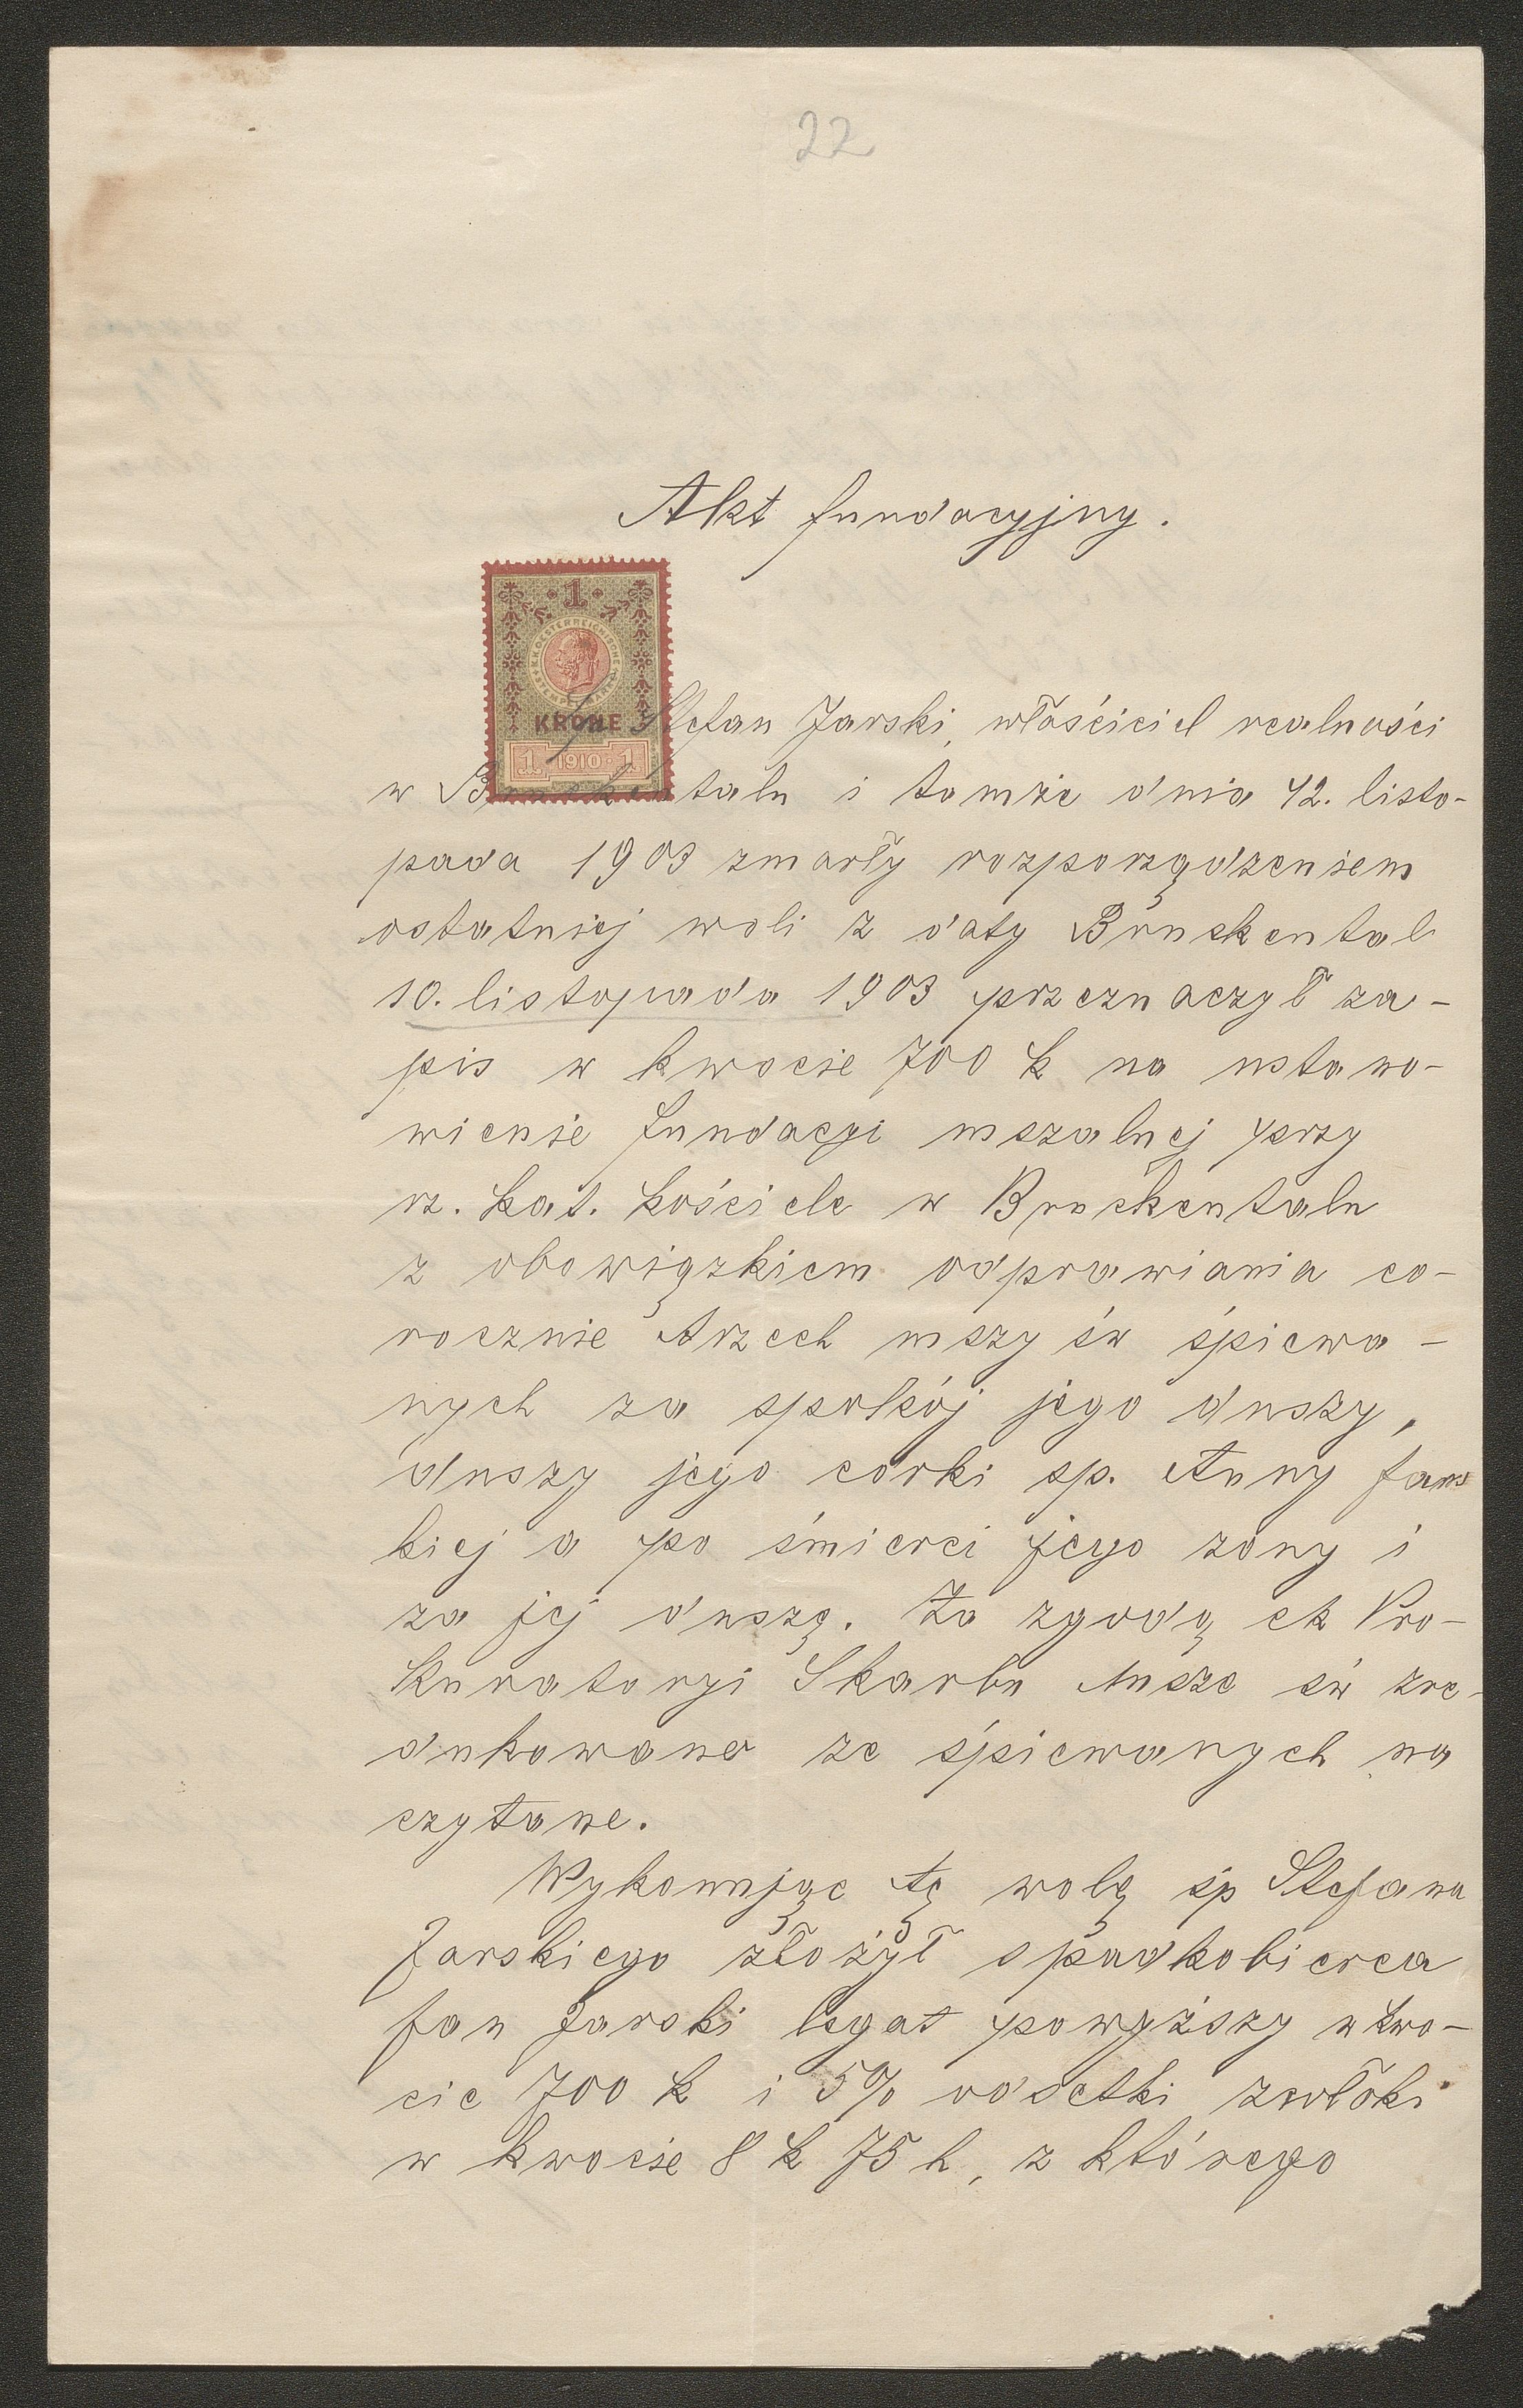 22
Akt fundacyjny.
1
K.K. OESTERREICHISCHE
KRONE
1 1910 1
Stefan Jarski, właściciel realności
w Bruckentalu i tamże dnia 12. listo-
pada 1903 zmarły rozporządzeniem
ostatniej woli z daty Bruckental
10. listopada 1903 przeznaczył za-
pis w kwocie 700 K na ustano-
wienie fundacyi mszalnej przy
rz. kat. kościele w Bruckentalu
z obowiązkiem odprawiania co-
rocznie trzech mszy św śpiewa-
nych za spokój jego duszy,
duszy jego córki sp. Anny Jars
kiej a po śmierci jego żony i
za jej duszę. Za zgodą ck Pro-
kuratoryi Skarbu Msze św zre-
dukowane ze śpiewanych na
czytane.
Wykonując tę wolę śp Stefana
Jarskiego złożył spadkobierca
Jan Jarski legat powyższy w kwo-
cie 700 K i 5% odsetki zwłoki
w kwocie 8 K 75 h, z którego